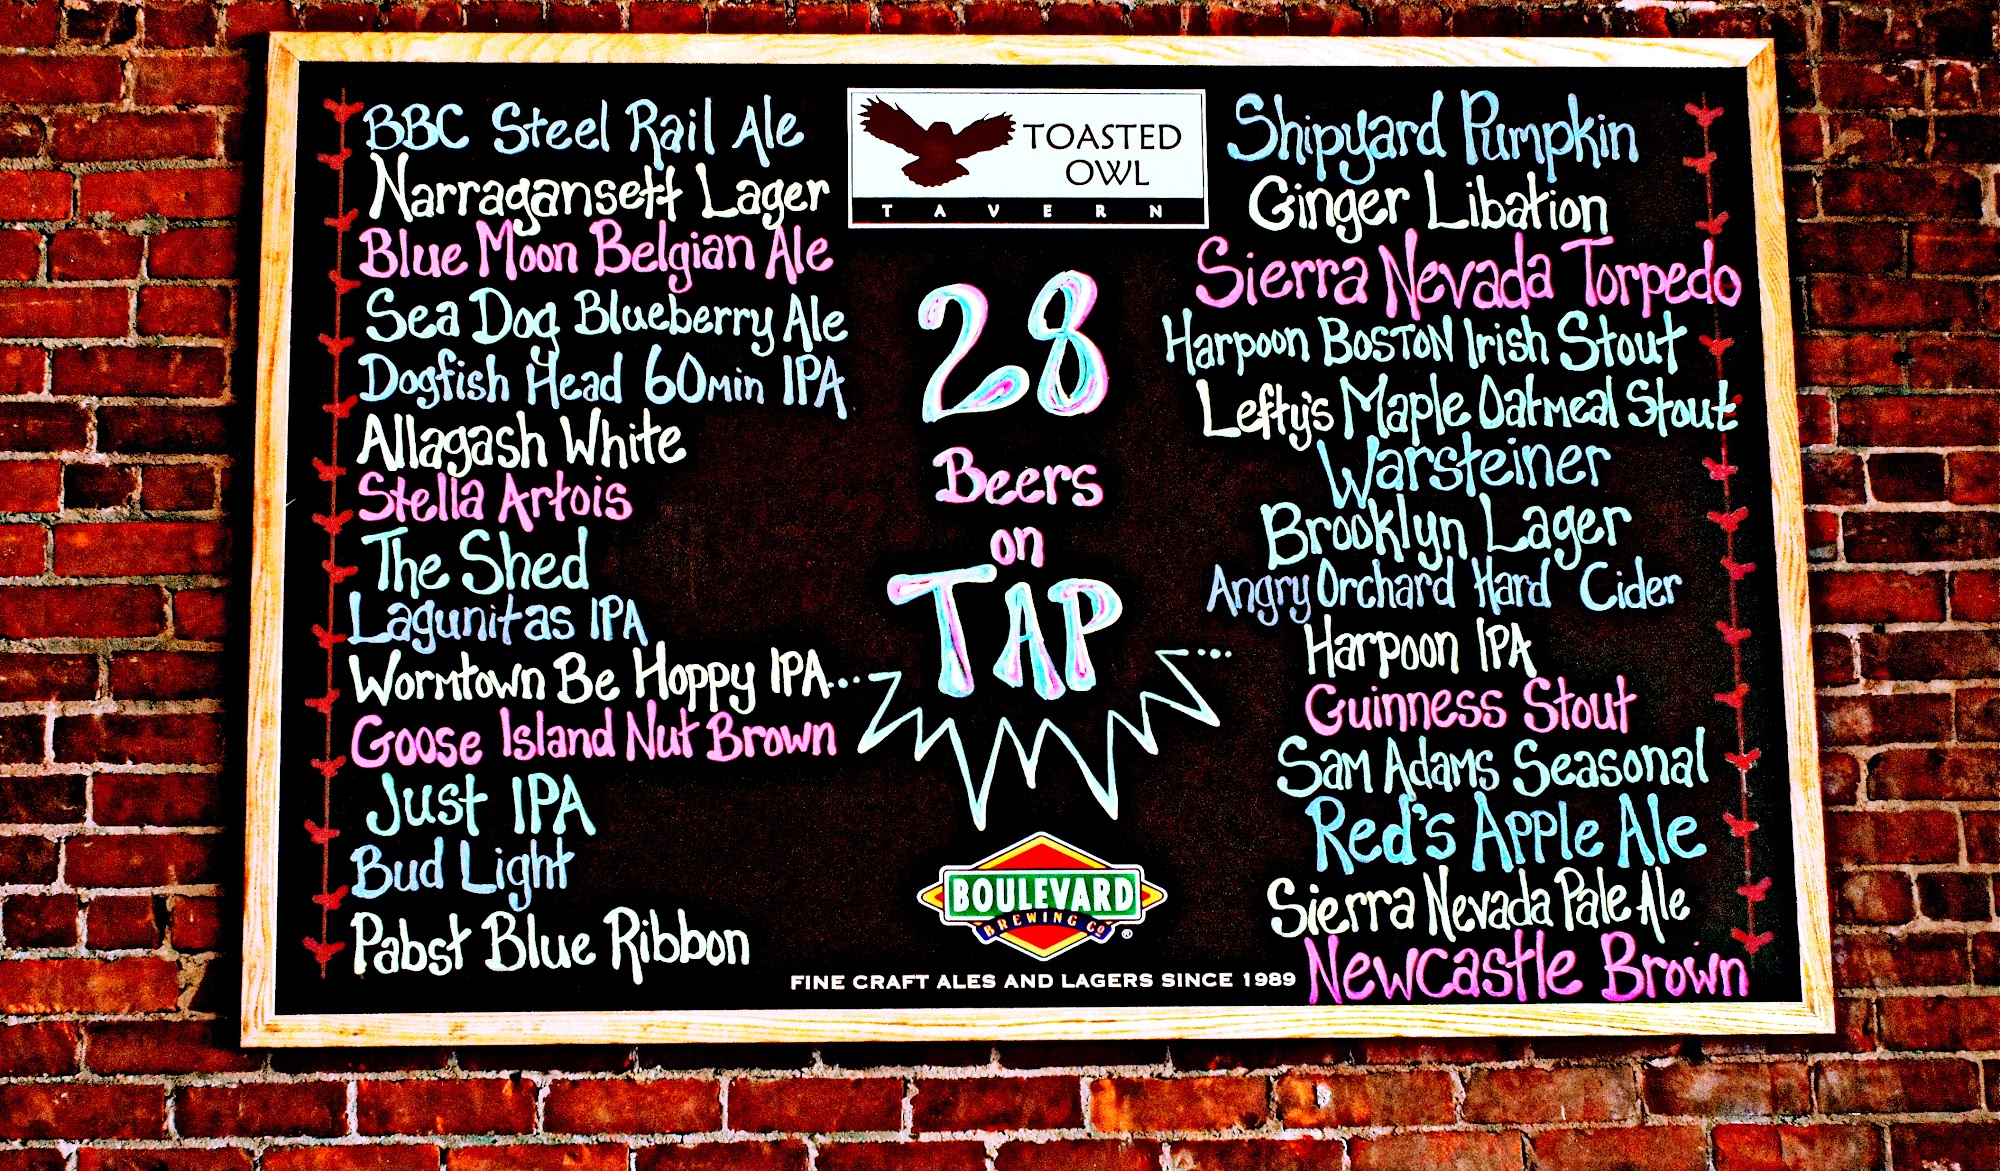 BBC Steel Rail Ale
Narragansett Lager
Blue Moon Belgian Ale
Sea Dog Blueberry Ale
Dogfish Head 60min IPA
Allagash White
Stella Artois
The Shed
Lagunitas IPA
Wormtown Be Hoppy IPA...
Goose Island Nut Brown
Just IPA
Bud Light
Pabst Blue Ribbon
TOASTED
OWL
TAVERN
28
Beers
on
TAP
BOULEVARD
BREWING CO
®
FINE CRAFT ALES AND LAGERS SINCE 1989
Shipyard Pumpkin
Ginger Libation
Sierra Nevada Torpedo
Harpoon BOSTON Irish Stout
Lefty's Maple Oatmeal Stout
Warsteiner
Brooklyn Lager
Angry Orchard Hard Cider
...Harpoon IPA
Guinness Stout
Sam Adams Seasonal
Red's Apple Ale
Sierra Nevada Pale Ale
Newcastle Brown